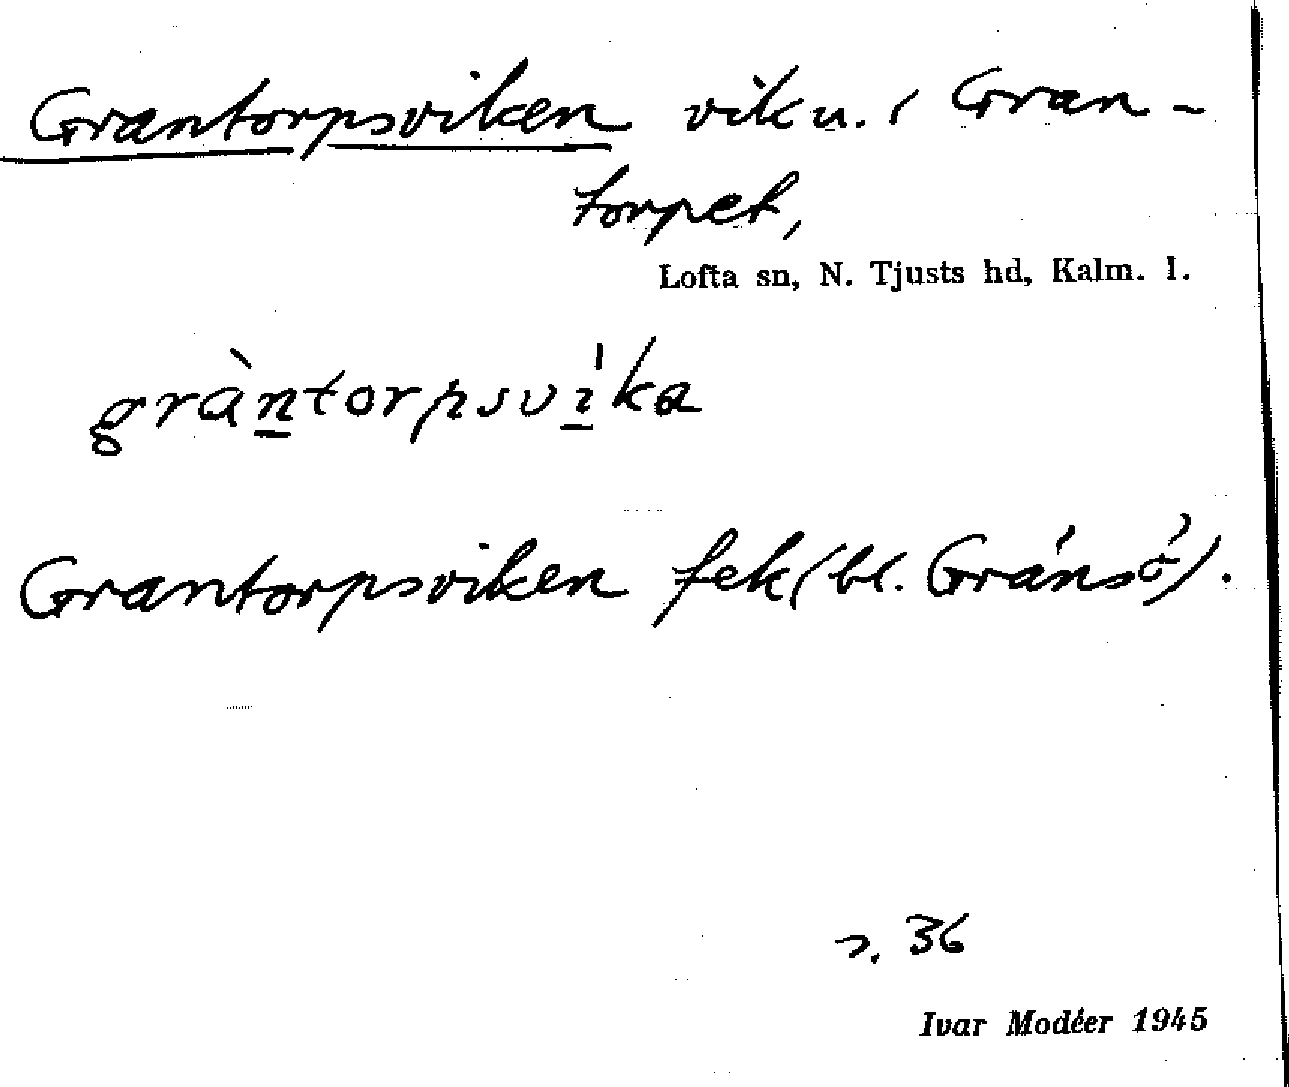 Grantorpsviken vik u. Gran-
torpet,
Lofta sn, N. Tjusts hd, Kalm. l.
gràntorpsvíka
Grantorpsviken fek (bl. Gránsö́).
s. 36
Ivar Modéer 1945